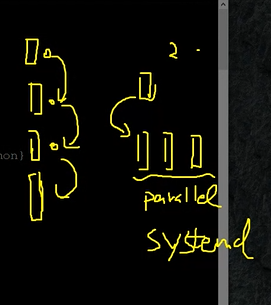 2.
hon}
parallel
systemd